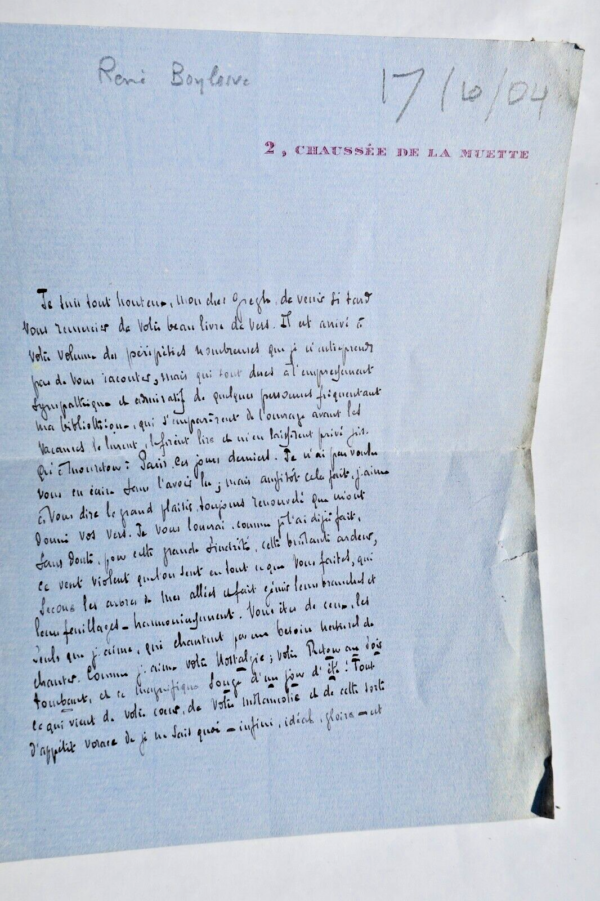 René Boylesve
17/10/04
2, CHAUSSÉE DE LA MUETTE
Je suis tout honteux, mon cher Gregh, de venir si tard
vous remercier de votre beau livre de vers. Il est arrivé à
votre volume des péripéties nombreuses que je n'entreprends
pas de vous raconter, mais qui sont dues à l'empressement
sympathique et admiratif de quelques personnes fréquentant
ma bibliothèque, qui s'emparèrent de l'ouvrage avant les
vacances, le lurent, le firent lire et m'en laissèrent privé jus-
qu'à mon retour à Paris, ces jours derniers. Je n'ai pas voulu
vous en écrire sans l'avoir lu ; mais aussitôt cela fait, j'aime
à vous dire le grand plaisir toujours renouvelé que m'ont
donné vos vers. Je vous louerai, comme je l'ai déjà fait,
sans doute, pour cette grande sincérité, cette brûlante ardeur,
ce vent violent qu'on sent en tout ce que vous faites, qui
secoue les arbres de mes allées et fait gémir leurs branches et
leurs feuillages — harmonieusement. Vous êtes de ceux, les
seuls que j'aime, qui chantent par un besoin naturel de
chanter. Comme j'aime votre Nostalgie ; votre Retour au soir
tombant, et ce magnifique Songe d'un jour d'été ! Tout
ce qui vient de votre cœur, de votre mélancolie et de cette sorte
d'appétit vorace de je ne sais quoi — infini, idéal, gloire — est